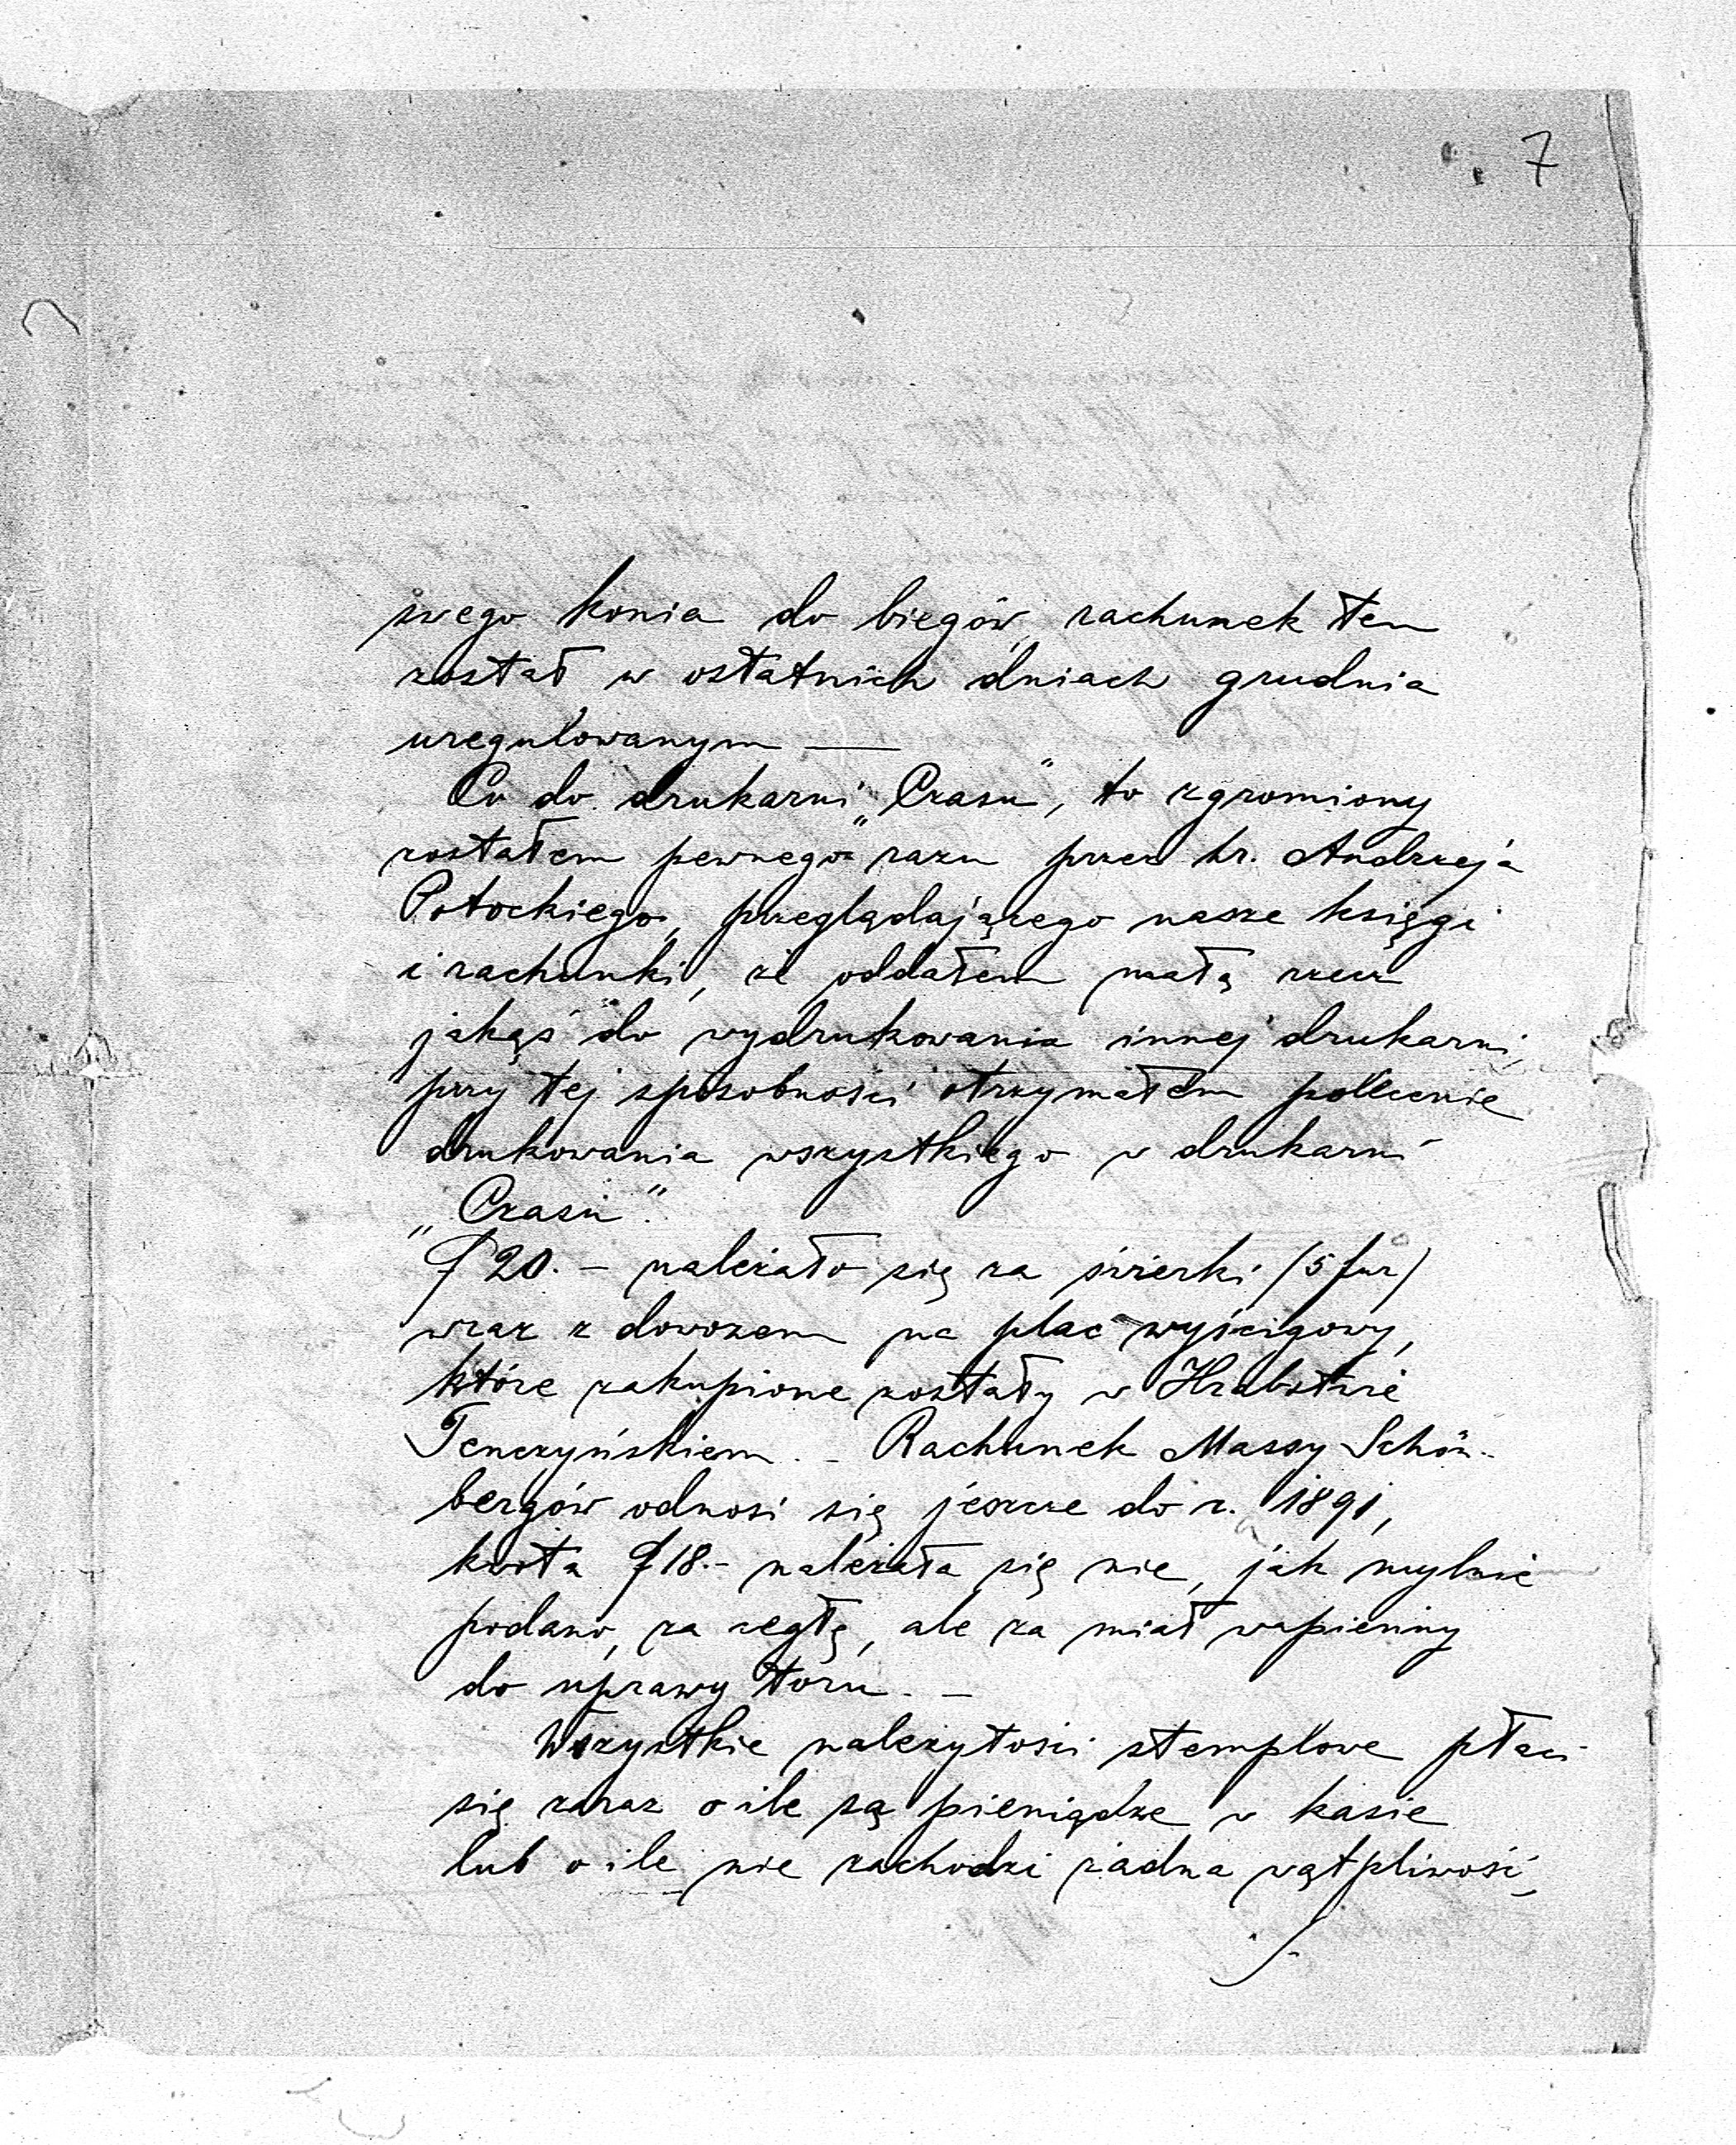 7
swego konia do biegów, rachunek ten
został w ostatnich dniach grudnia
uregulowanym —
Co do drukarni „Czasu", to zgromiony
zostałem pewnego razu przez hr. Andrzeja
Potockiego, przeglądającego nasze księgi
i rachunki, że oddałem małą rzecz
jakąś do wydrukowania innej drukarni,
przy tej sposobności otrzymałem polecenie
drukowania wszystkiego w drukarni
„Czasu".
20.- należało się za (5 fur)
wraz z dowozem na plac wyścigowy,
które zakupione zostały w Hrabstwie
Tenczyńskiem. - Rachunek Massy Schön-
bergów odnosi się jeszcze do r. 1891,
kwota 18.- należała się nie, jak mylnie
podano, za cegłę, ale za miał wapienny
do uprawy toru. -
Wszystkie należytości stemplowe płaci
się zaraz o ile są pieniądze w kasie
lub o ile nie zachodzi żadna wątpliwość,